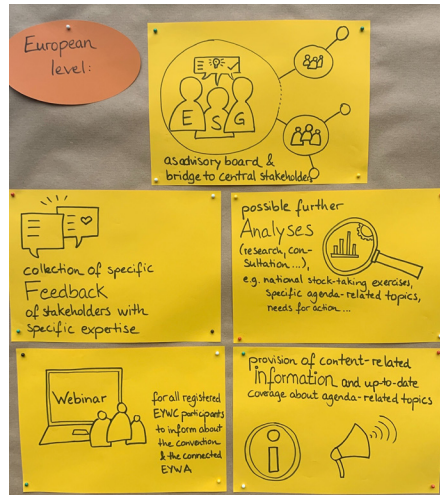 European
level:
E S G
as advisory board &
bridge to central stakeholder
collection of specific
Feedback
of stakeholders with
specific expertise
possible further
Analyses
(research, con-
sultation ...),
e.g. national stock-taking exercises,
specific agenda-related topics,
needs for action ...
Webinar
for all registered
EYWC participants
to inform about
the convention
& the connected
EYWA
provision of content-related
Information and up-to-date
coverage about agenda-related topics
i